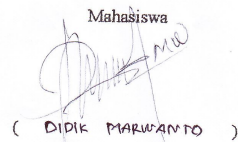 Mahasiswa
( DIDIK MARWANTO )